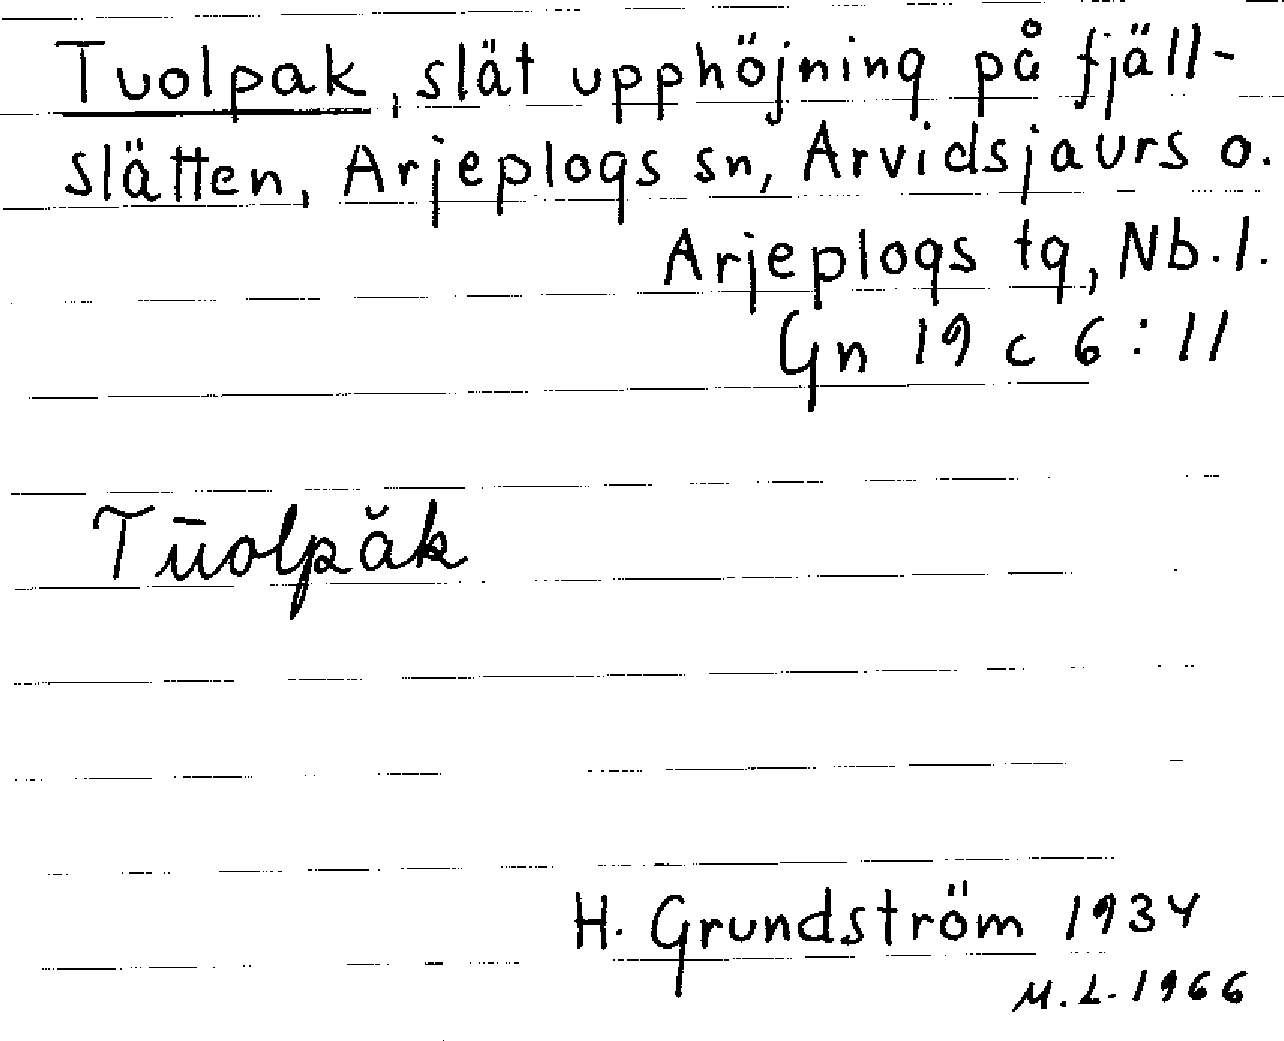 Tuolpak, slät upphöjning på fjäll-
slätten, Arjeplogs sn, Arvidsjaurs o.
Arjeplogs tg, Nb.l.
Gn 19 c 6:11
Tūolpăk
H. Grundström 1934
M.L. 1966